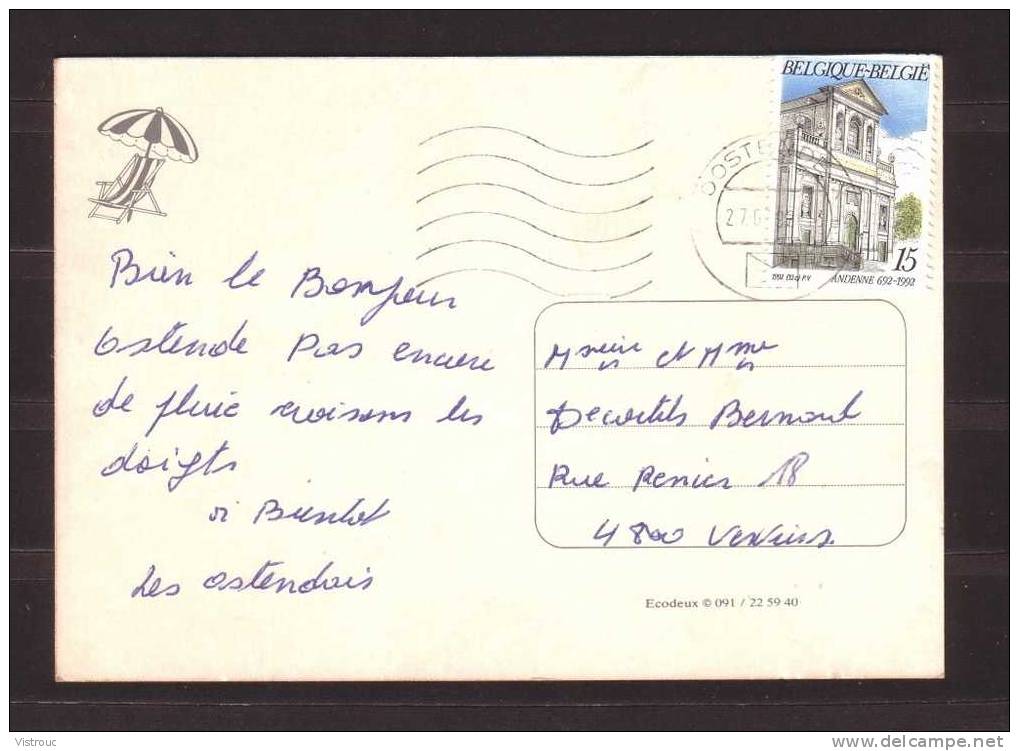 BELGIQUE-BELGIË
OOSTENDE
27.
15
1992 (12a) P.V
ANDENNE 692-1992
Bien le Bonjour
Ostende Pas encore
de pluie croisons les
doigts
à Bientot
Les ostendais
Msieur et Mme
Bernard
Rue Renier 18
4800 Verviers.
Ecodeux © 091 / 22 59 40
©Vistrouc
www.delcampe.net